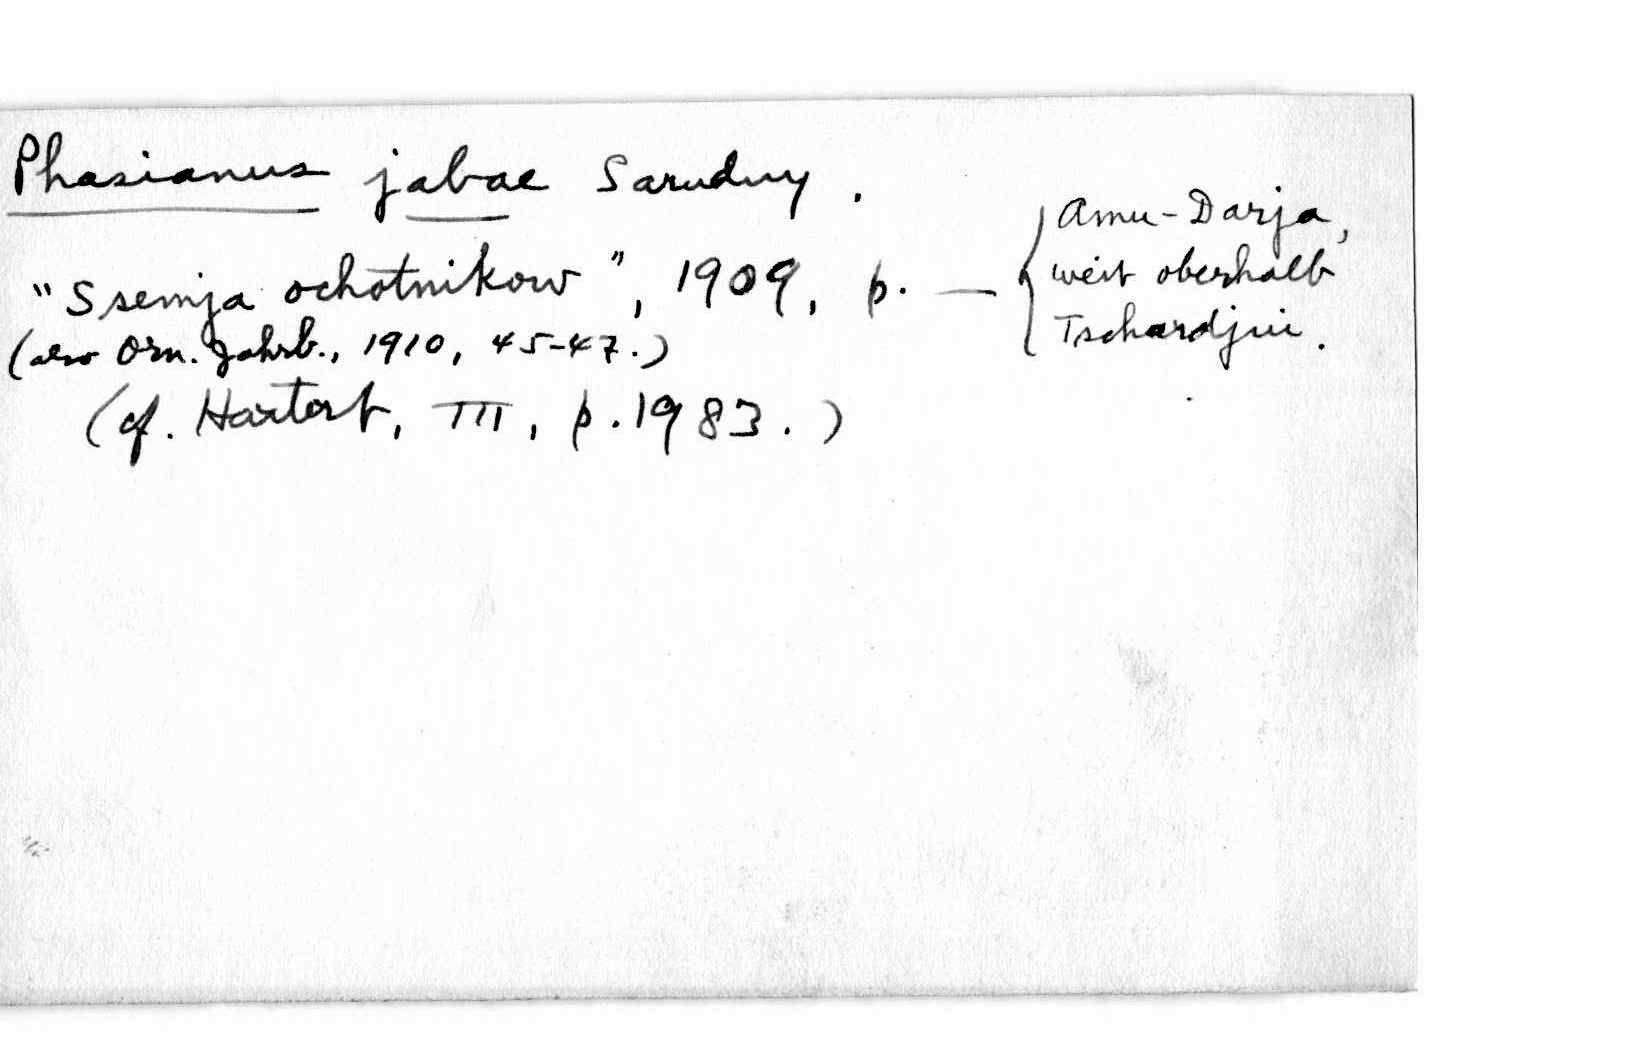 Phasianus jabae Sarudny.
"Ssemja ochotnikow", 1909, p. —
{ Amu-Darja,
weit oberhalb
Tschardjui.
(also Orn. Jahrb., 1910, 45-47.)
(cf. Hartert, III, p. 1983.)